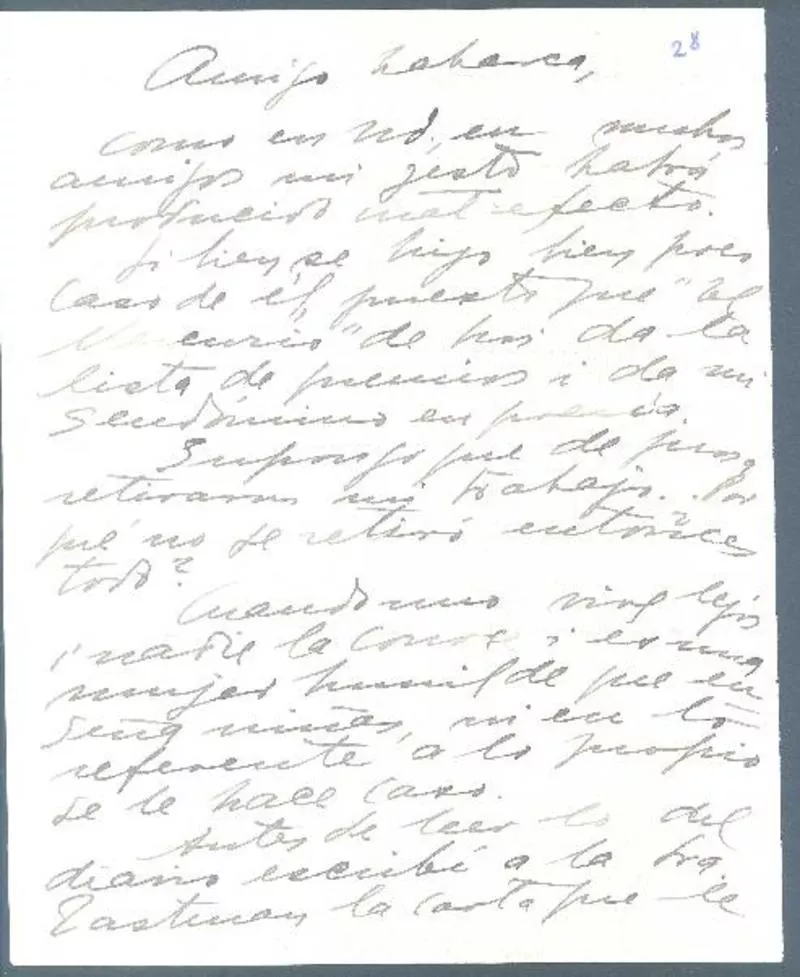 28
Amigo Labarca,
Como en Ud., en muchos
amigos mi gesto habrá
producido mal efecto.
Si bien se hizo bien poco
caso de él, puesto que "El
Mercurio" de hoi da la
lista de premios i da mi
seudónimo en
Supongo que de
retiraron mi trabajo. Por
qué no se retiró entonces
todo?
Cuando uno vive lejos
i nadie la conoce i es una
mujer humilde que en
seña niñas, ni en lo
referente a lo propio
se le hace caso.
Antes de leer lo del
diario escribí a la Sra.
Eastman la carta que le